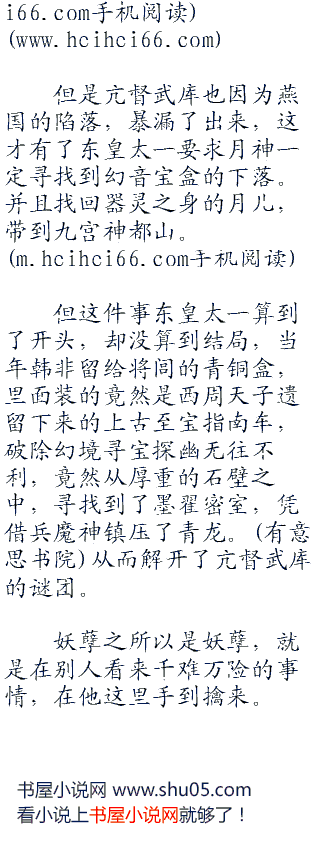 i66.com手机阅读)
(www.hcihci66.com)
但是亢督武库也因为燕
国的陷落，暴漏了出来，这
才有了东皇太一要求月神一
定寻找到幻音宝盒的下落。
并且找回器灵之身的月儿，
带到九宫神都山。
(m.hcihci66.com手机阅读)
但这件事东皇太一算到
了开头，却没算到结局，当
年韩非留给将闾的青铜盒，
里面装的竟然是西周天子遗
留下来的上古至宝指南车，
破除幻境寻宝探幽无往不
利，竟然从厚重的石壁之
中，寻找到了墨翟密室，凭
借兵魔神镇压了青龙。(有意
思书院)从而解开了亢督武库
的谜团。
妖孽之所以是妖孽，就
是在别人看来千难万险的事
情，在他这里手到擒来。
书屋小说网 www.shu05.com
看小说上书屋小说网就够了！